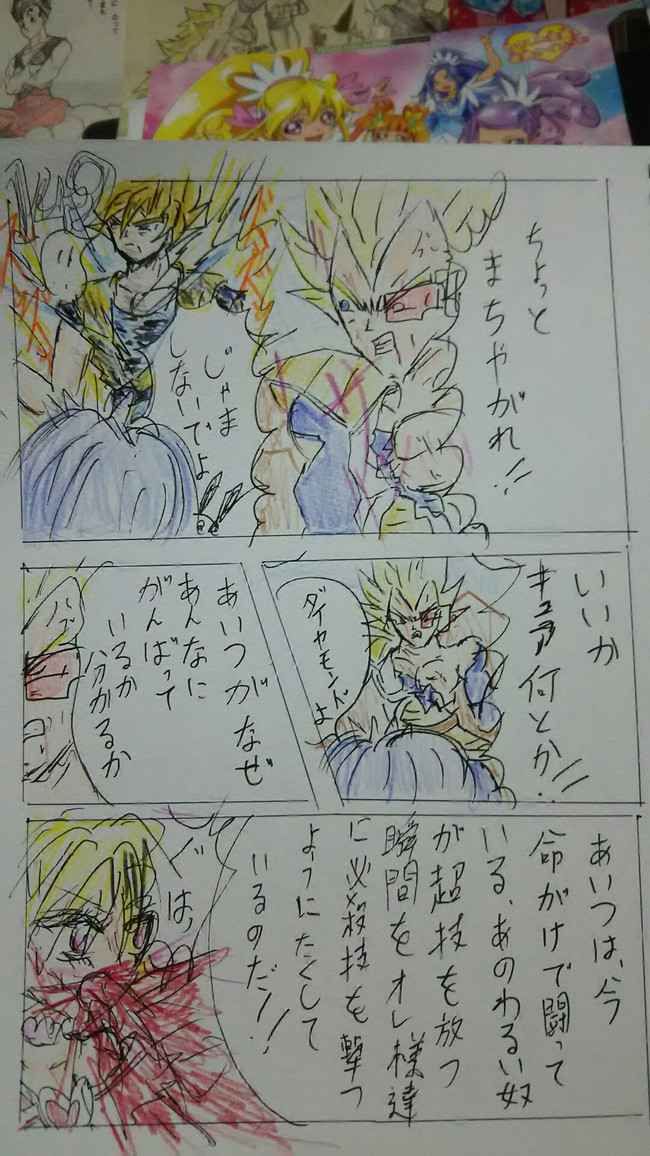 ちょっと
まちゃがれ!!
じゃま
しないでよ
149
いいか
キュア何とか!!
ダイヤモンドよ
あいつがなぜ
あんなに
がんばって
いるか
分かるか
あいつは、今
命がけで闘って
いる、あのわるい奴
が超技を放つ
瞬間をオレ様達
に必殺技を撃つ
ようにたくして
いるのだ!!
ぐはっ